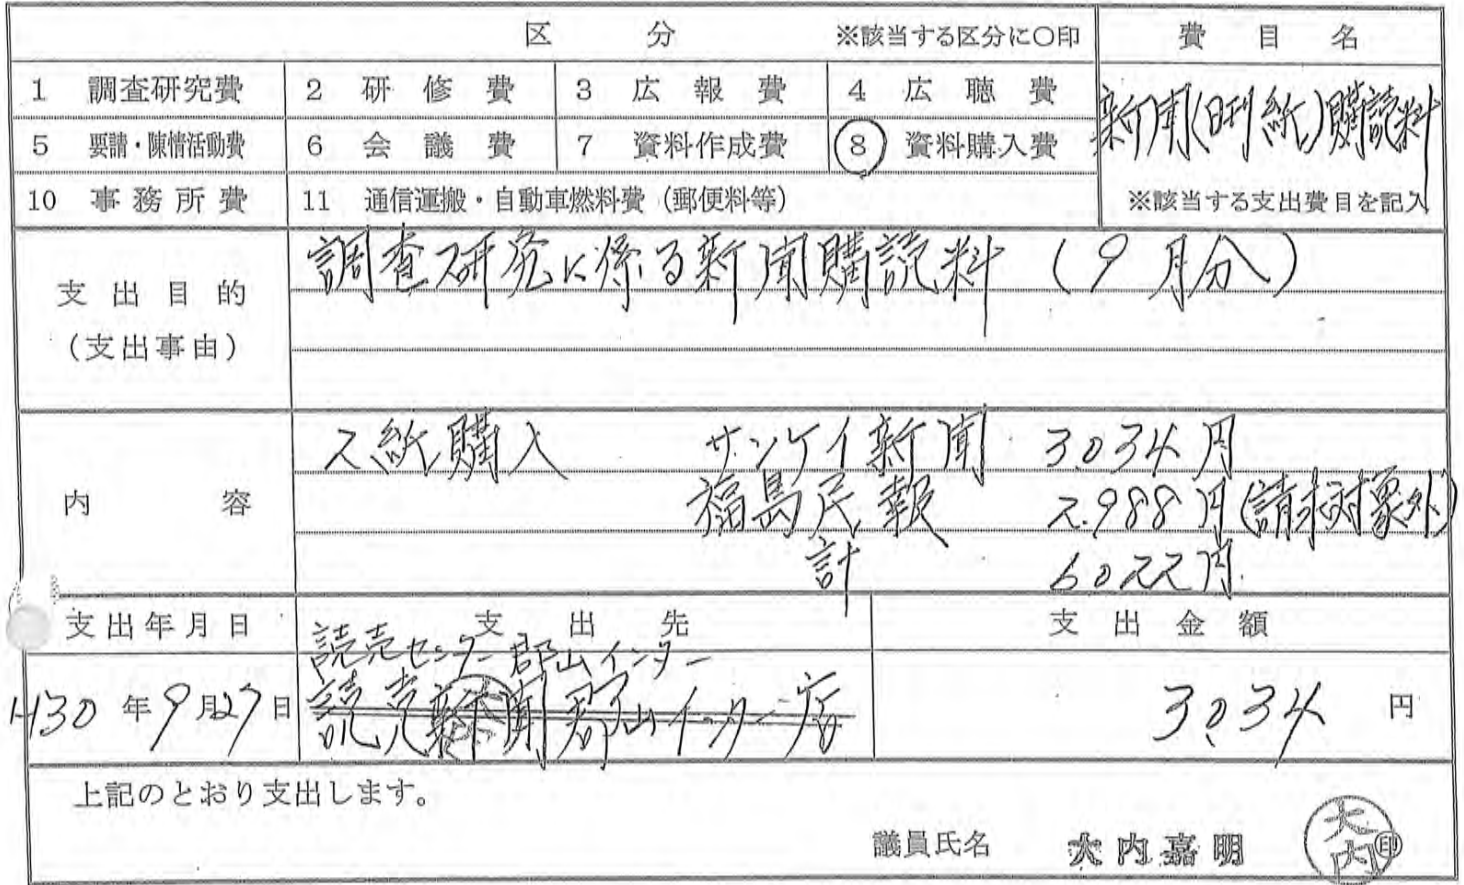 区 分 ※該当する区分に○印 費目名
1 調査研究費 2 研修費 3 広報費 4 広聴費 新聞(日刊紙)購読料
5 要請・陳情活動費 6 会議費 7 資料作成費 8 資料購入費
10 事務所費 11 通信運搬・自動車燃料費(郵便料等) ※該当する支出費目を記入
支出目的 調査研究に係る新聞購読料(9月分)
(支出事由)
2紙購入 サンケイ新聞 3.034円
内容 福島民報 2.988円(請求対象外)
計 6022円
支出年月日 支出先 支出金額
読売センター郡山インター
H30年9月27日 読売新聞郡山インター店 3.034円
上記のとおり支出します。
議員氏名 大内嘉明 大内 印